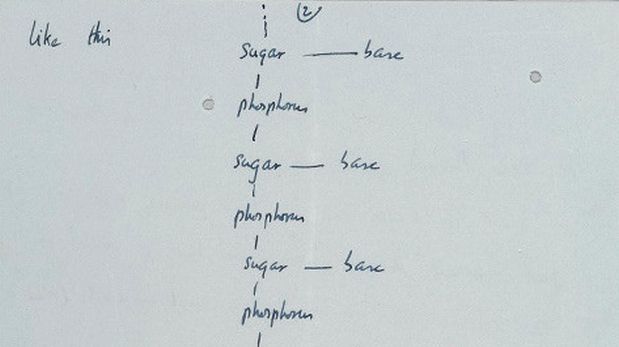 ②
like this
sugar — base
phosphorus
sugar — base
phosphorus
sugar — base
phosphorus